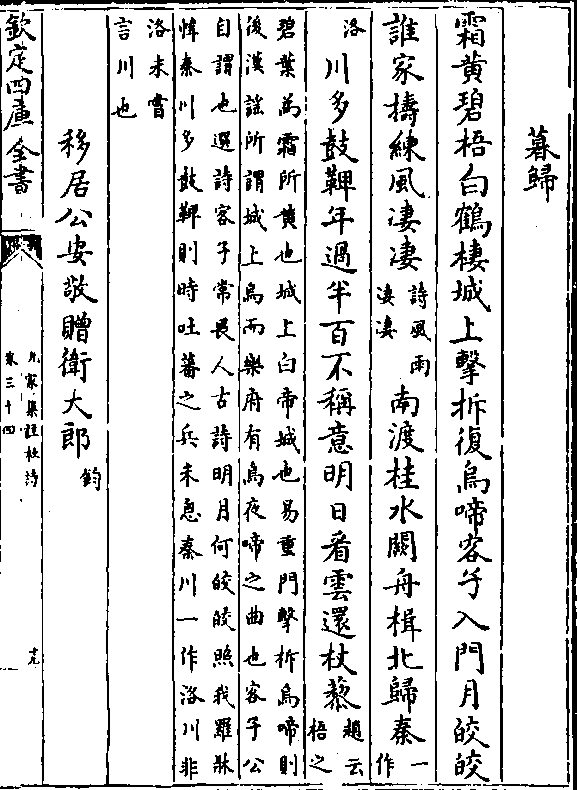 暮歸
霜黄碧梧白鶴棲城上擊柝復烏啼客子入門月皎皎
誰家擣練風凄凄
詩風雨
凄凄
南渡桂水闕舟楫北歸秦
一
作
洛
川多鼓鞞年過半百不稱意明日看雲還杖藜
趙云
梧之
碧葉為霜所黄也城上白帝城也易重門擊柝烏啼則
後漢謡所謂城上烏而樂府有烏夜啼之曲也客子公
自謂也選詩客子常畏人古詩明月何皎皎照我羅牀
幃秦川多鼓鞞則時吐蕃之兵未息秦川一作洛川非
洛未嘗
言川也
移居公安敬贈衛大郎
鈞
欽定四庫全書
九家集註杜詩
卷三十四
十九